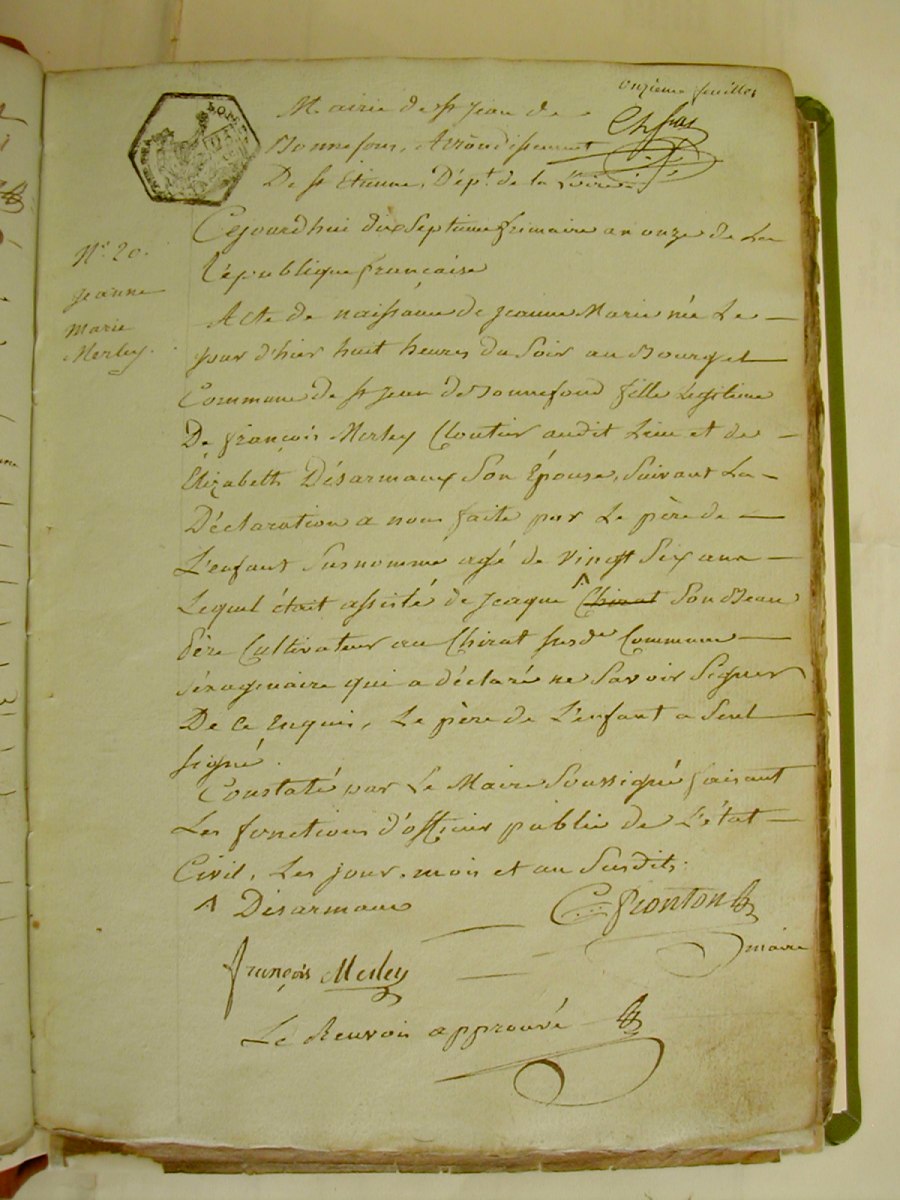 onzieme feuillet
Mairie de St Jean de
Bonnefont, Arrondissement
De St Etienne, Dépt. de la Loire
Cejourdhui dix Septieme frimaire an onze de La
République française
N° 20.
Jeanne
Marie
Merley.
Acte de naissance de Jeanne Marie née Le
jour d'hier huit heures du Soir au Bourg et
Commune de St Jean de Bonnefond fille Légitime
De françois Merley Cloutier audit Lieu et de
Elizabeth Désarmaux Son Épouse, Suivant La
Déclaration a nous faite par Le père de
L'enfant Susnommé agé de vingt Six ans
Lequel était assisté de Jacque ^ Chirat Son Beau
Père Cultivateur au Chirat susde Commune
séxagénaire qui a déclaré ne Savoir Signer
De Ce Enquis, Le père de L'enfant a Seul
signé.
Constaté par Le Maire Soussigné faisant
Les fonctions d'officier public de L'état
Civil, Les jour, mois et an Susdits.
^ Désarmaux
C. Fronton
maire
françois Merley
Le Renvois approuvé